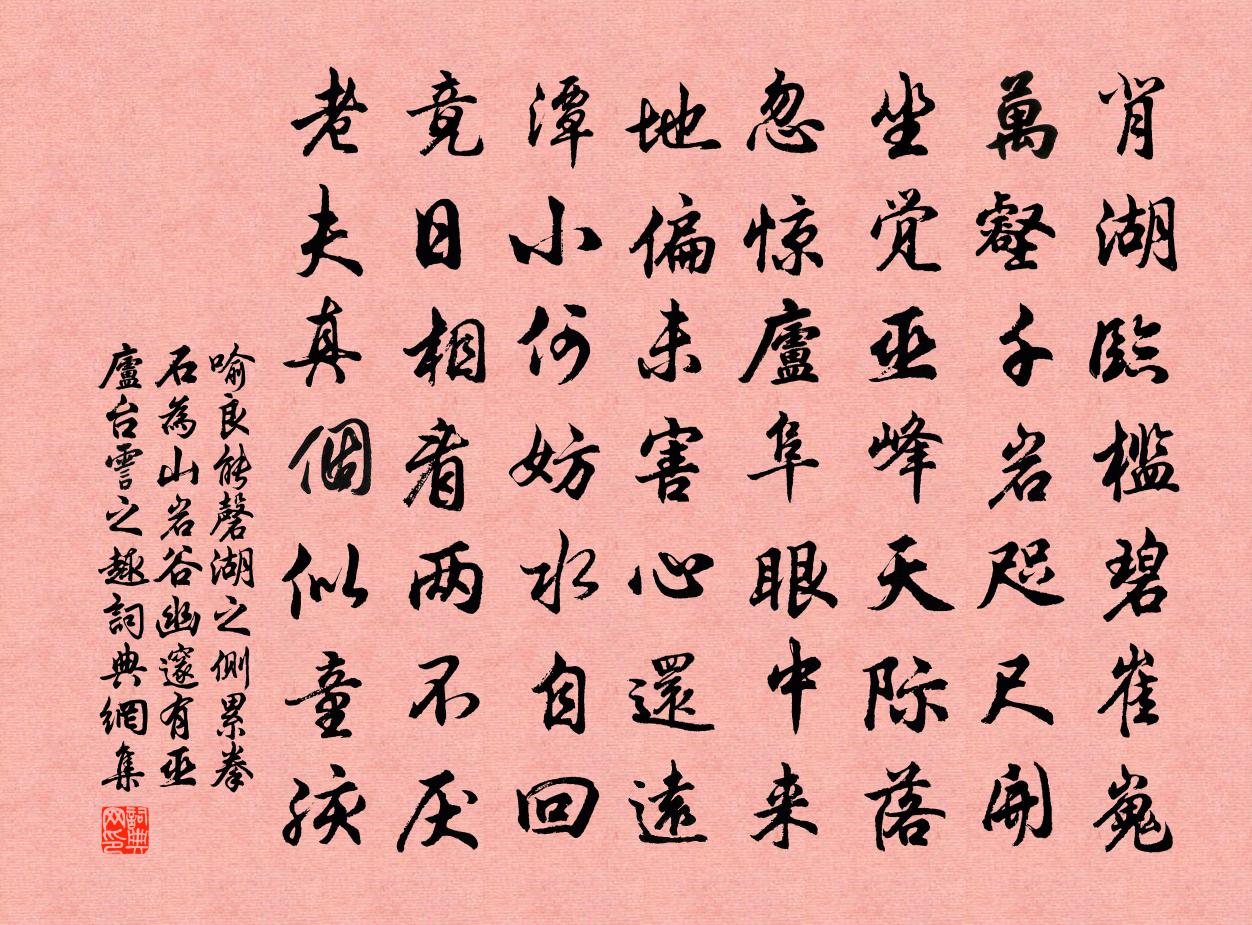 肖湖臨檻碧崔嵬
萬壑千岩咫尺開
坐觉巫峰天际落
忽惊廬阜眼中来
地偏未害心還遠
潭小何妨水自回
竟日相看两不厌
老夫真個似童孩
喻良能磬湖之側累拳
石為山岩谷幽邃有巫
廬台雩之趣詞典網集
詞典网印